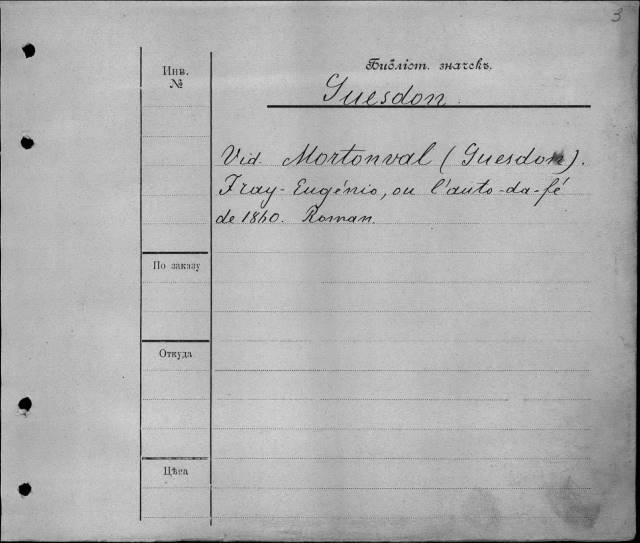 3
Инв.
№
Библіот. значекъ.
Guesdon.
Vid. Mortonval (Guesdon).
Fray-Eugénio, ou l'auto-da-fé
de 1860. Roman.
По заказу
Откуда
Цѣна